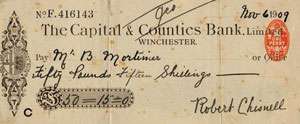 No. F. 416143
Nov 6 1909
The Capital & Counties Bank, Limited.
WINCHESTER.
Pay Mr B. Mortimer or Order
Fifty Pounds Fifteen Shillings
£50=15=0
Robert Chisnell
C